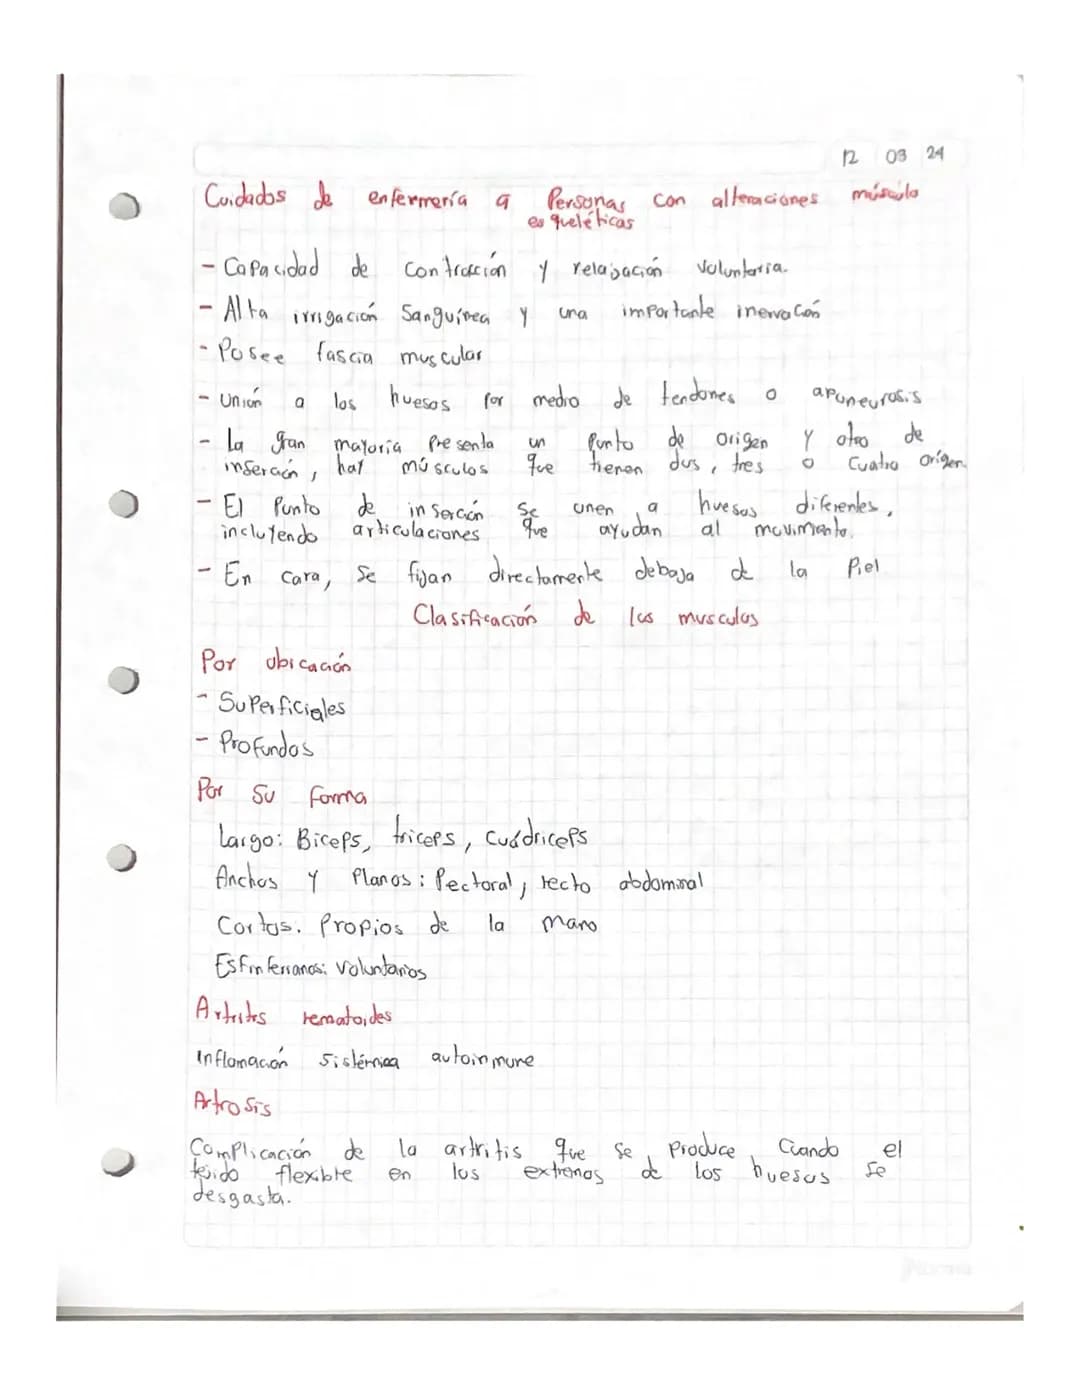 12 03 24
Cuidados de enfermería a Personas con alteraciones músculo
esqueléticas
- Capacidad de contracción y relajación voluntaria.
- Alta irrigación Sanguínea y una importante inervación
- Posee fascia muscular
- Unión a los huesos por medio de tendones o aponeurosis
- La gran mayoría Presenta un Punto de origen y otro de
inserción, hay músculos que tienen dos, tres o cuatro origen.
- El Punto de inserción se unen a huesos diferentes,
incluyendo articulaciones que ayudan al movimiento.
- En cara, se fijan directamente debajo de la Piel
Clasificación de los musculos
Por ubicación
- Superficiales
- Profundos
Por su forma
Largo: Biceps, triceps, Cuádriceps
Anchos y Planos: Pectoral, recto abdominal
Cortos. Propios de la mano
Esfinterianos: Voluntarios
Artritis rematoides
Inflamación sistémica autoinmune
Artrosis
Complicación de la artritis que se produce cuando el
tejido flexible en los extremos de los huesos se
desgasta.